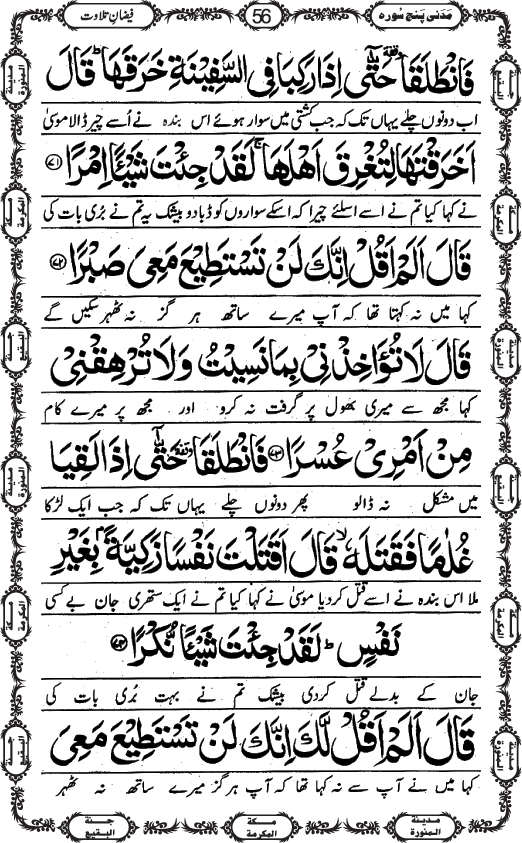 مَدَنی پَنج سُورہ
56
فیضانِ تلاوت
فَانْطَلَقَا ٝ حَتّٰۤى اِذَا رَكِبَا فِی السَّفِیْنَةِ خَرَقَهَا ؕ قَالَ
اب دونوں چلے یہاں تک کہ جب کشتی میں سوار ہوئے اس بندہ نے اُسے چیر ڈالا موسیٰ
اَخَرَقْتَهَا لِتُغْرِقَ اَهْلَهَا ۚ لَقَدْ جِئْتَ شَیْـًٔا اِمْرًا ﴿۷۱﴾
نے کہا کیا تم نے اسے اسلئے چیرا کہ اسکے سواروں کو ڈبا دو بیشک یہ تم نے بُری بات کی
قَالَ اَلَمْ اَقُلْ اِنَّكَ لَنْ تَسْتَطِیْعَ مَعِیَ صَبْرًا ﴿۷۲﴾
کہا میں نہ کہتا تھا کہ آپ میرے ساتھ ہر گز نہ ٹھہر سکیں گے
قَالَ لَا تُؤَاخِذْنِیْ بِمَا نَسِیْتُ وَ لَا تُرْهِقْنِیْ
کہا مجھ سے میری بھول پر گرفت نہ کرو اور مجھ پر میرے کام
مِنْ اَمْرِیْ عُسْرًا ﴿۷۳﴾ فَانْطَلَقَا ٝ حَتّٰۤى اِذَا لَقِیَا
میں مشکل نہ ڈالو پھر دونوں چلے یہاں تک کہ جب ایک لڑکا
غُلٰمًا فَقَتَلَهٗ ۙ قَالَ اَقَتَلْتَ نَفْسًا زَكِیَّةًۢ بِغَیْرِ
ملا اس بندہ نے اسے قتل کردیا موسیٰ نے کہا کیا تم نے ایک ستھری جان بے کسی
نَفْسٍ ؕ لَقَدْ جِئْتَ شَیْـًٔا نُّكْرًا ﴿۷۴﴾
جان کے بدلے قتل کردی بیشک تم نے بہت بُری بات کی
قَالَ اَلَمْ اَقُلْ لَّكَ اِنَّكَ لَنْ تَسْتَطِیْعَ مَعِیَ
کہا میں نے آپ سے نہ کہا تھا کہ آپ ہرگز میرے ساتھ نہ ٹھہر
مدینة المنورة
مكة المكرمة
جنة البقيع
مدینة المنورة
مكة المكرمة
جنة البقيع
جنة البقيع
مكة المكرمة
مدینة المنورة
جنة البقيع
مكة المكرمة
مدینة المنورة
مدینة المنورة
مكة المكرمة
جنة البقيع